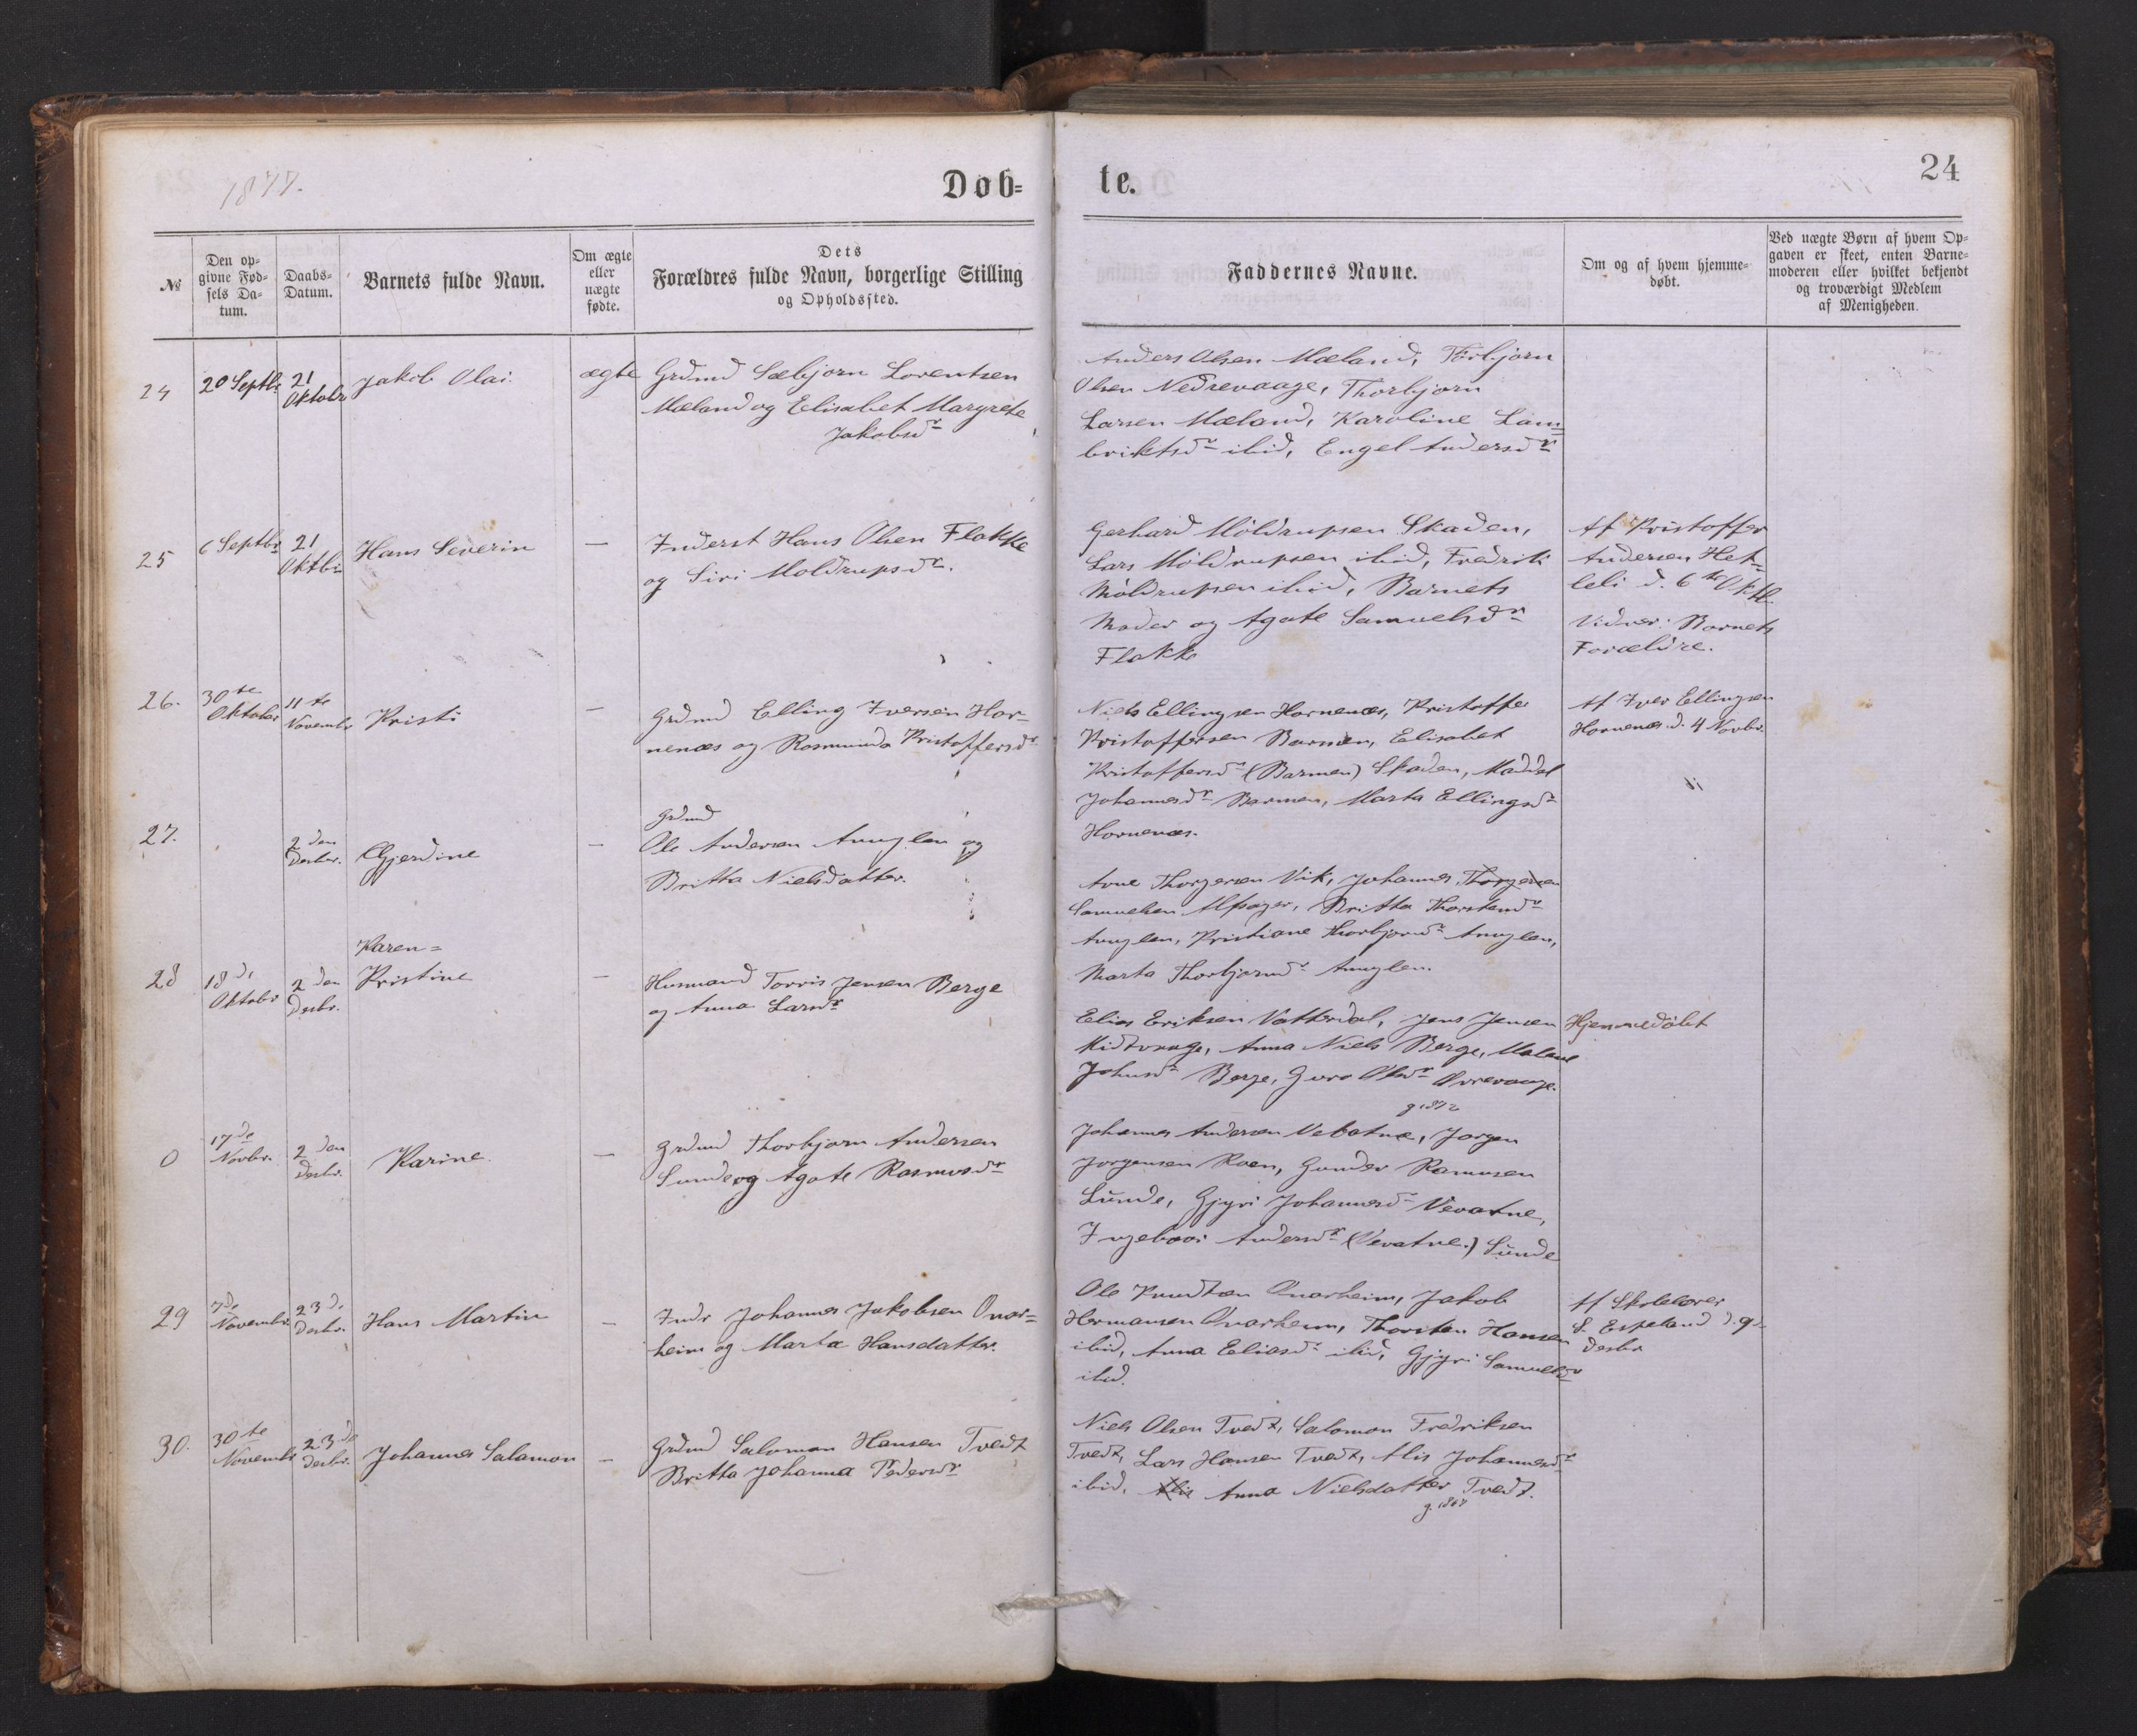 1877.
Døb=
te.
24
No
Den op-
givne Fød-
sels Da-
tum.
Daabs-
Datum.
Barnets fulde Navn.
Om ægte
eller
uægte
fødte.
Dets
Forældres fulde Navn, borgerlige Stilling
og Opholdssted.
Faddernes Navne.
Om og af hvem hjemme-
døbt.
Ved uægte Børn af hvem Op-
gaven er skeet, enten Barne-
moderen eller hvilket bekjendt
og troværdigt Medlem
af Menigheden.
24
20 Septbr
21
Oktobr
Jakob Olai.
ægte
Grdmd Sæbjørn Lorentsen
Mæland og Elisabet Margrete
Jakobsdr
Anders Olsen Mæland, Torbjørn
Olsen Nedrevaage, Thorbjørn
Larsen Mæland, Karoline Lam=
briktsdr ibid, Engel Andersdr
25
6 Septbr
21
Oktbr
Hans Severin
—
Inderst Hans Olsen Flakke
og Siri Moldrupsdr.
Gerhard Möldrupsen Skaden,
Lars Möldrupsen ibid, Fredrik
Möldrupsen ibid, Barnets
Moder og Agate Samuelsdr
Flakke
Af Kristoffer
Andersen Het=
leli d. 6te Oktb.
Vidner: Barnets
Forældre.
26.
30te
Oktober
11te
Novembr
Kristi
—
Grdmd Elling Iversen Hor=
nenæs og Rasmunda Kristoffersdr
Niels Ellingsen Hornenæs, Kristoffer
Kristoffersen Barmen, Elisabet
Kristoffersdr (Barmen) Skaden, Maddel
Johannesdr Barmen, Marta Ellingsdr
Hornenæs.
Af Iver Ellingsen
Hornenæs d. 4 Novbr.
27.
2den
Desbr.
Gjerdine
—
Grdmd
Ole Andersen Amuglen og
Britta Nielsdatter.
Arne Thorgersen Vik, Johannes Thorgersen
Samuelsen Alsager, Britta Thorstensdr
Amuglen, Kristiane Thorbjørnsdr Amuglen,
Marta Thorbjørnsdr Amuglen.
28
18de
Oktobr
2den
Desbr.
Karen=
Kristine
—
Husmand Torris Jensen Berge
og Anna Larsdr
Elias Eriksen Vatterdal, Jens Jensen
Midtvaage, Anna Niels Berge, Malene
Johnsdr Berge, Guro Olsdr Øvrevaage.
Hjemmedøbt
0
17de
Novbr.
2den
Desbr.
Karine
—
Grdmd Thorbjørn Andersen
Sunde og Agate Rasmusdr
Johannes Andersen Vebatne, Jørgen
Jørgensen Roen, Gunder Rasmusen
Sunde, Gjyri Johannesdr Vevatne,
Ingeborg Andersdr (Vevatne.) Sunde
29
7de
Novembr
23de
Desbr.
Hans Martin
—
Indr Johannes Jakobsen Onar=
heim og Marta Hansdatter.
Ole Knudtsen Onarheim, Jakob
Hermansen Onarheim, Thorsten Hansen
ibid, Anna Eliasdr ibid, Gjyri Samuelsdr
ibid.
Af Skolelærer
S. Espeland d. 9de
Desbr
30.
30te
Novembr
23de
Desbr.
Johannes Salamon
—
Grdmd Salomon Hansen Tvedt
Britta Johanna Pedersdr
Niels Olsen Tvedt, Salomon Fredriksen
Tvedt, Lars Hansen Tvedt, Alis Johannesdr
ibid, Alis Anna Nielsdatter Tvedt.